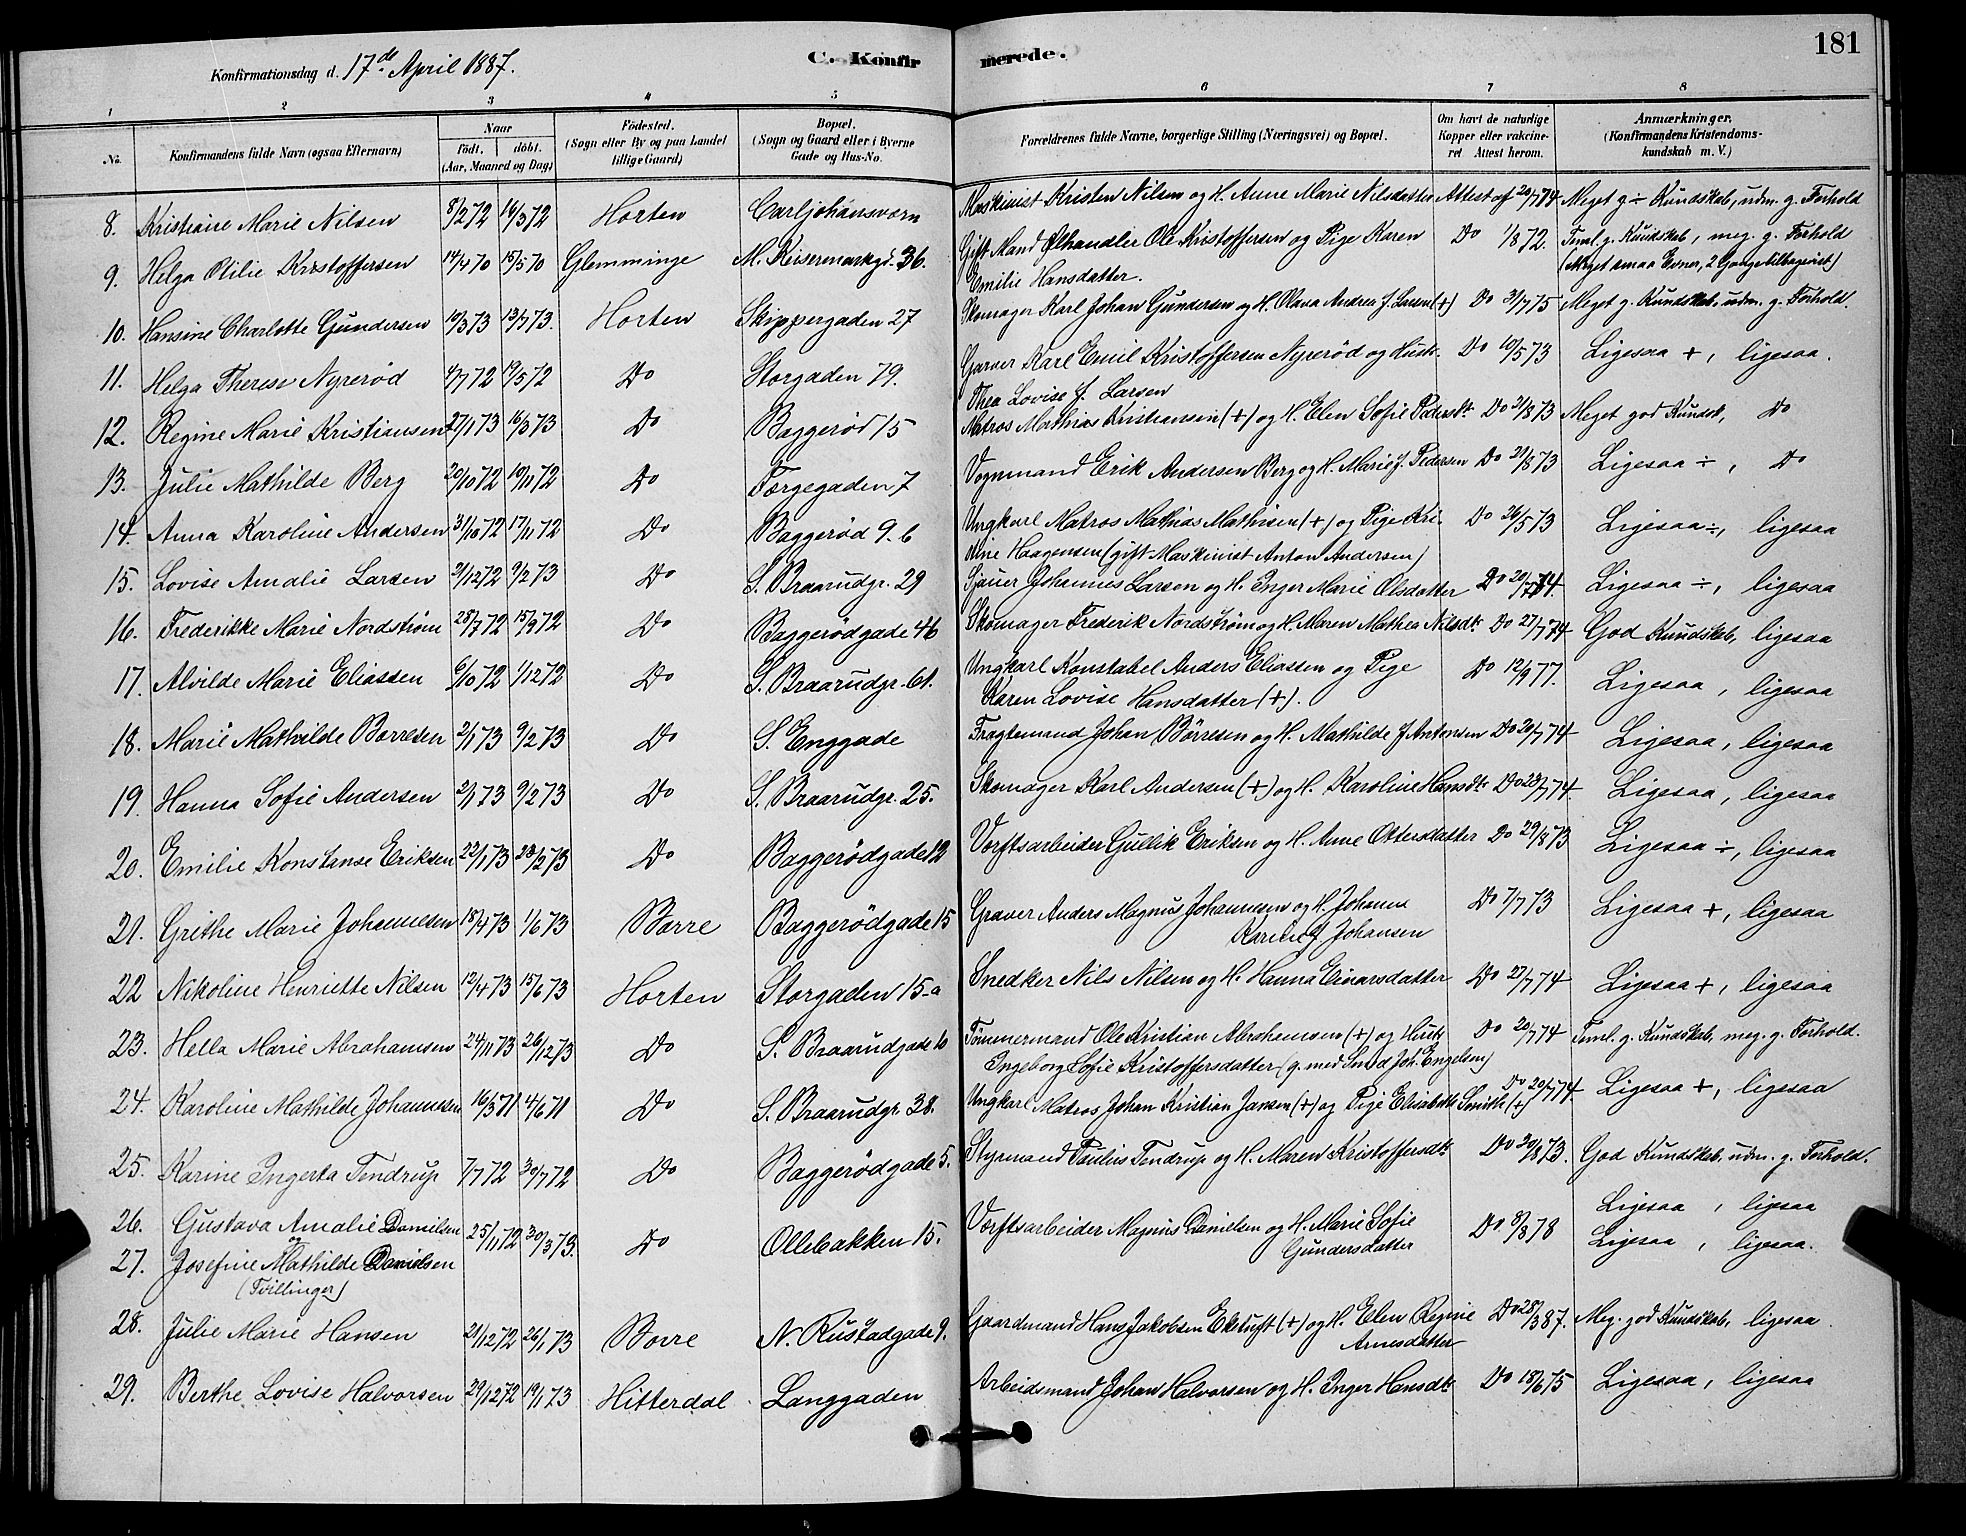 181
Konfirmationsdag d. 17de April 1887.
C. Konfirmerede.
1 2 3 4 5 6 7 8
No. Konfirmandens fulde Navn (ogsaa Efternavn) Naar født. døbt. (Aar, Maaned og Dag) Fødested. (Sogn eller By og paa Landet tillige Gaard) Bopæl. (Sogn og Gaard eller i Byerne Gade og Hus-No. Forældrenes fulde Navne, borgerlige Stilling (Næringsvei) og Bopæl. Om havt de naturlige Kopper eller vakcineret Attest herom. Anmærkninger. (Konfirmandens Kristendomskundskab m. V.)
8. Kristiane Marie Nilsen 8/2 72 16/3 72 Horten Carljohansværn Maskinist Kristen Nilsen og H. Anne Marie Nilsdatter Attest af 20/7 74 Meget g ÷ Kundskab, udm. g. Forhold
9. Helga Otilie Kristoffersen 14/4 70 15/5 70 Glemminge M. Keisermarkgd. 36. Gift Mand Ølhandler Ole Kristoffersen og Pige Karen Do 1/8 72. Teml. g. Kundskab, meg. g. Forhold
Emilie Hansdatter. (Meget smaa Evner, 2 Gange tilbagevist)
10. Hansine Charlotte Gundersen 19/3 73 13/7 73. Horten Skippergaden 27 Skomager Karl Johan Gundersen og H. Olava Andrea f. Larsen (+) Do 31/7 75 Meget g. Kundskab, udm. g. Forhold.
11. Helga Therese Nyrerød 4/7 72 19/5 72 Do Storgaden 79. Garver Karl Emil Kristoffersen Nyrerød og Hust. Do 10/5 73 Ligesaa +, ligesaa.
Thea Lovise f. Larsen
12. Regine Marie Kristiansen 27/1 73 16/3 73 Do Baggerød 15 Matros Mathias Kristiansen (+) og H. Elen Sofie Pedersdt. Do 21/8 73 Meget god Kundsk, Do
13. Julie Mathilde Berg 20/10 72 10/11 72 Do Torgegaden 7 Vognmand Erik Andersen Berg og H. Marie f. Pedersen Do 21/8 73 Ligesaa ÷, Do
14. Anna Karoline Andersen 31/10 72 17/11 72 Do Baggerød 9. b Ungkarl Matros Mathias Mathisen (+) og Pige Kri- Do 26/5 73 Ligesaa ÷, ligesaa
stine Haagensen (gift Maskinist Anton Andersen)
15. Lovise Amalie Larsen 21/12 72 9/2 73 Do S. Braarudgr. 29 Sjauer Johannes Larsen og H. Inger Marie Olsdatter Do 20/7 74 Ligesaa ÷, ligesaa
16. Frederikke Marie Nordstrøm 28/7 72 15/9 72 Do Baggerødgade 46 Skomager Frederik Nordstrøm og H. Maren Mathea Nilsdt. Do 27/7 74 God Kundskab, ligesaa
17. Alvilde Marie Eliassen 6/10 72 1/12 72 Do S. Braarudgr. 61. Ungkarl Konstabel Anders Eliassen og Pige Do 12/9 77. Ligesaa, ligesaa
Karen Lovise Hansdatter (+).
18. Marie Mathilde Børresen 2/1 73 9/2 73 Do S. Enggade Fragtemand Johan Børresen og H. Mathilde f Antonsen Do 20/7 74 Ligesaa, ligesaa
19. Hanna Sofie Andersen 2/1 73 9/2 73 Do S. Braarudgr. 25. Skomager Karl Andersen (+) og H. Karoline Hansdt. Do 23/7 74. Ligesaa, ligesaa
20. Emilie Konstanse Eriksen 22/1 73 23/2 73 Do Baggerødgade 12 Værftsarbeider Gullik Eriksen og H. Anne Ottersdatter Do 29/8 73 Ligesaa ÷, ligesaa
21. Grethe Marie Johannesen 18/4 73 1/6 73 Borre Baggerødgade 15 Graver Anders Magnus Johannesen og H. Johanne Do 7/7 73 Ligesaa +, ligesaa
Karine f Johansen
22 Nikoline Henriette Nilsen 12/4 73 15/6 73 Horten Storgaden 15-a Snedker Nils Nilsen og H. Hanna Einarsdatter Do 27/7 74 Ligesaa +, ligesaa
23. Hella Marie Abrahamsen 24/11 73 26/12 73 Do S. Braarudgade 10 Tømmermand Ole Kristian Abrahamsen (+) og Hust. Do 20/7 74 Teml. g. Kundskab, meg. g. Forhold.
Ingeborg Sofie Kristoffersdatter (g. med Smed Joh. Engelsen)
24. Karoline Mathilde Johannesen 16/3 71 4/6 71 Do S. Braarudgr 38. Ungkarl Matros Johan Kristian Jansen (+) og Pige Elisabeth Smith (+) Do 20/7 74 Ligesaa +, ligesaa
25. Karine Ingerta Tendrup 7/7 72 30/7 72 Do Baggerødgade 5. Styrmand Paulus Tendrup og H. Maren Kristoffersdt. Do 30/8 73. God Kundskab, udm. g. Forhold.
26. Gustava Amalie Danielsen 25/11 72 30/3 73. Do Ollebakken 15. Værftsarbeider Magnus Danielsen og H. Marie Sofie Do 8/8 78 Ligesaa, ligesaa
og Gundersdatter
27. Josefine Mathilde Danielsen Ligesaa, ligesaa.
(Tvillinger)
28. Julie Marie Hansen 21/12 72 26/1 73 Borre N. Rustadgade 9. Gaardmand Hans Jakobsen Eketuft (+) og H. Elen Regine Do 28/3 87. Meg. god Kundskab, ligesaa.
Arnesdatter
29. Berthe Lovise Halvorsen 29/12 72 19/1 73 Hitterdal Langgaden Arbeidsmand Johan Halvorsen og H. Inger Hansdt. Do 18/6 75 Ligesaa, ligesaa